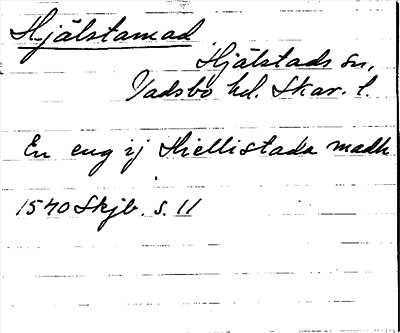 Hjälstamad
Hjälstads sn,
Vadsbo hd. Skar. l.
En eng ij Hiellistada madh
1540 Skjb. s. 11